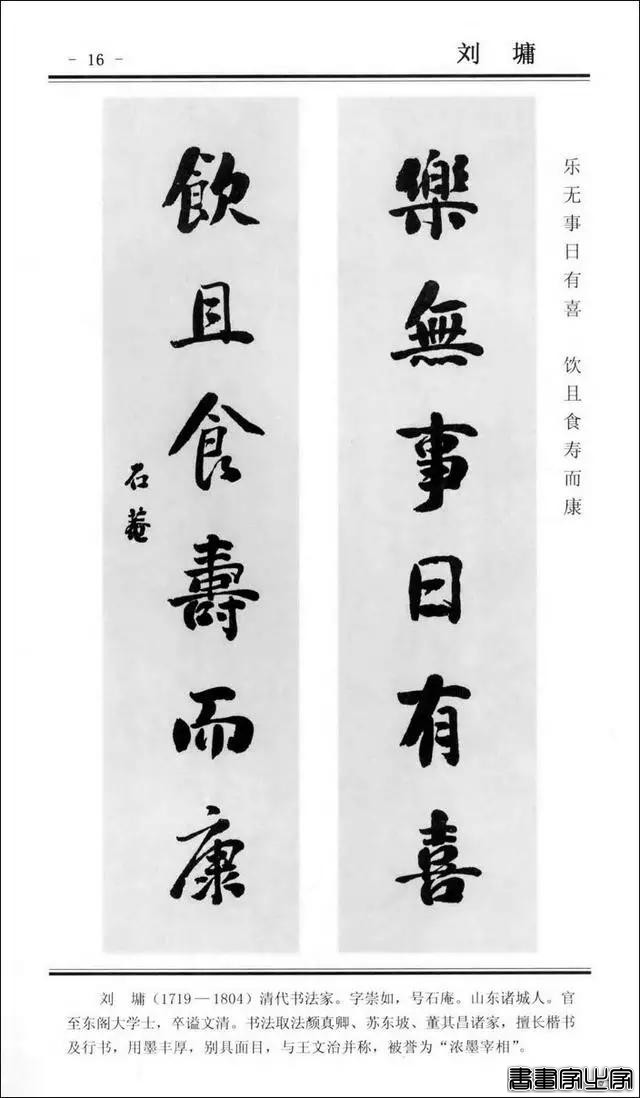 - 16 -
刘 墉
樂無事日有喜
飲且食壽而康
石菴
乐无事日有喜 饮且食寿而康
刘 墉(1719—1804)清代书法家。字崇如,号石庵。山东诸城人。官
至东阁大学士,卒谥文清。书法取法颜真卿、苏东坡、董其昌诸家,擅长楷书
及行书,用墨丰厚,别具面目,与王文治并称,被誉为“浓墨宰相”。
書畫家必字